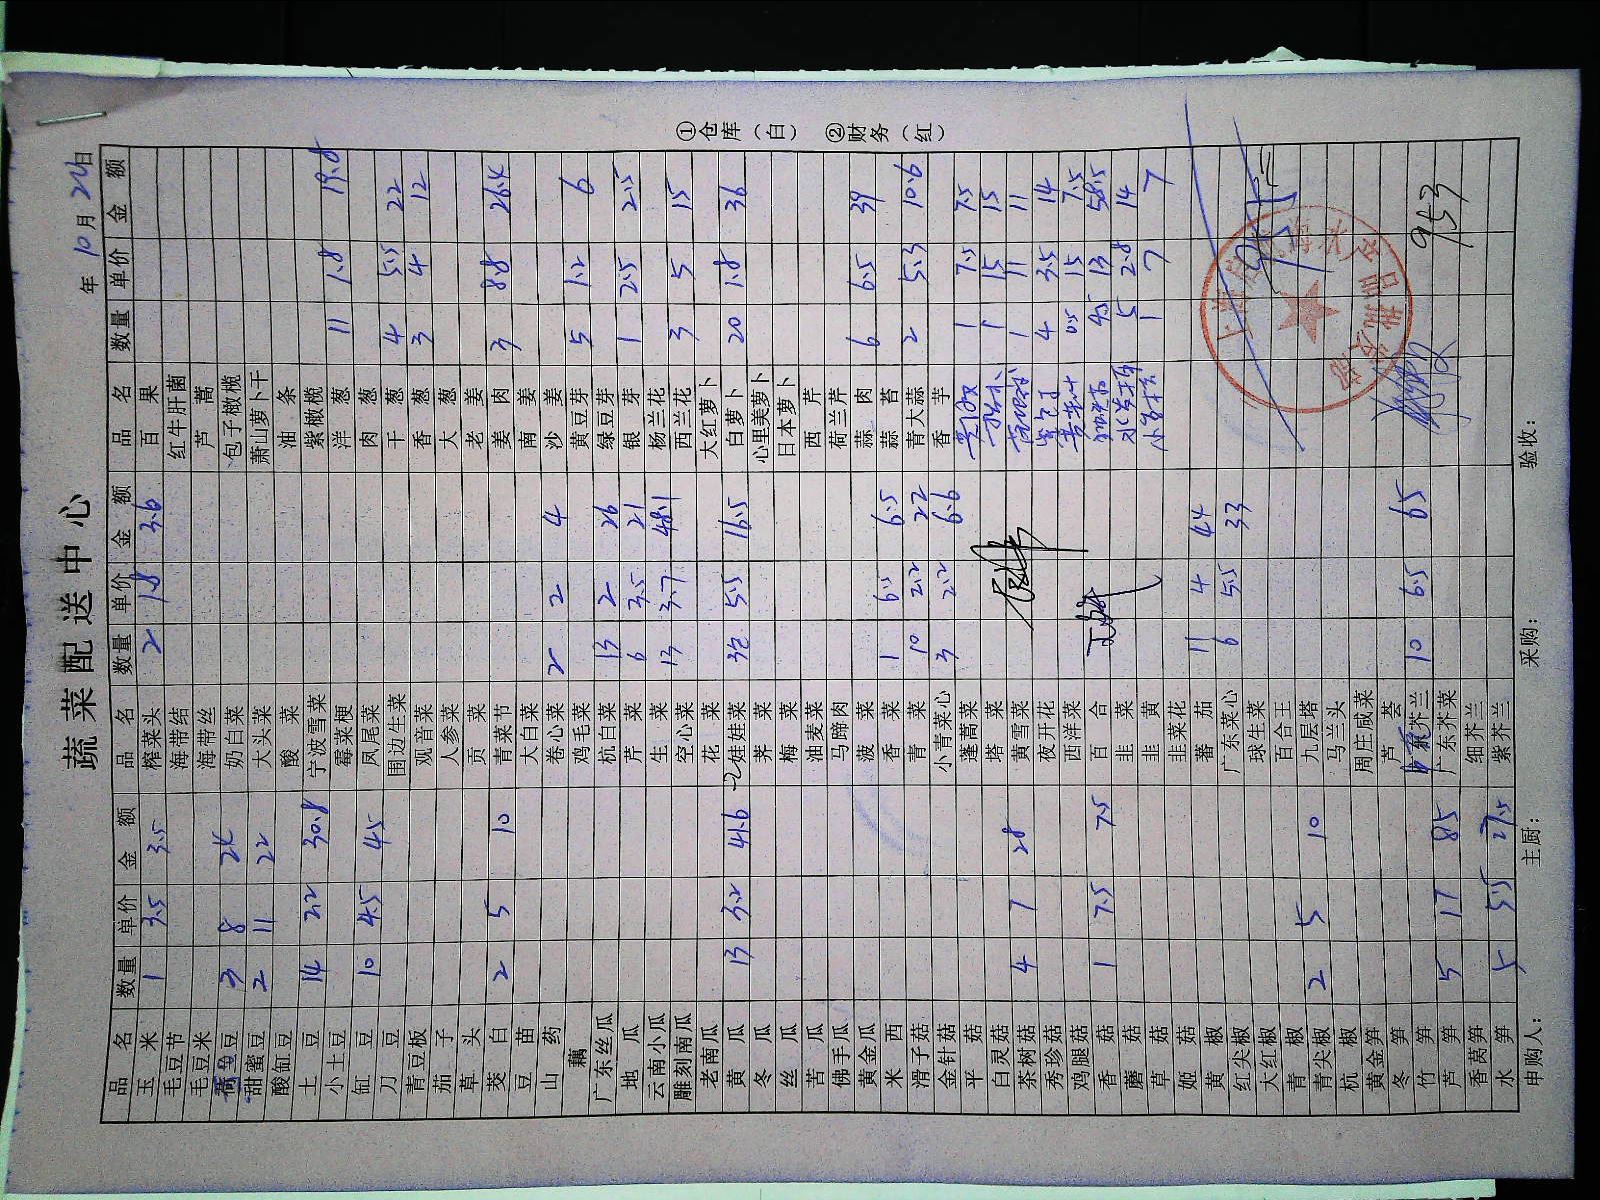 蔬菜配送中心
年 10月 24日
品名 数量 单价 金额 品名 数量 单价 金额 品名 数量 单价 金额
玉米 1 3.5 3.5 榨菜头 2 1.8 3.6 百果
毛豆节 海带结 红牛肝菌
毛豆米 海带丝 芦蒿
豆 3 8 24 奶白菜 包子橄榄
甜蜜豆 2 11 22 大头菜 萧山萝卜干
酸缸豆 酸菜 油条
土豆 14 2.2 30.8 宁波雪菜 紫橄榄
小土豆 霉菜梗 洋葱 11 1.8 19.8
缸豆 10 4.5 45 凤尾菜 肉葱
刀豆 围边生菜 干葱 4 5.5 22
青豆板 观音菜 香葱 3 4 12
茄子 人参菜 大葱
草头 贡菜 老姜
茭白 2 5 10 青菜节 姜肉 3 8.8 26.4
豆苗 大白菜 南姜
山药 卷心菜 2 2 4 沙姜
藕 鸡毛菜 黄豆芽 5 1.2 6
广东丝瓜 杭白菜 13 2 26 绿豆芽
地瓜 芹菜 6 3.5 21 银芽 1 2.5 2.5
云南小瓜 生菜 13 3.7 48.1 杨兰花
雕刻南瓜 空心菜 西兰花 3 5 15
老南瓜 花菜 大红萝卜
黄瓜 13 3.2 41.6 娃娃菜 3包 5.5 16.5 白萝卜 20 1.8 36
冬瓜 荠菜 心里美萝卜
丝瓜 梅菜 日本萝卜
苦瓜 油麦菜 西芹
佛手瓜 马蹄肉 荷兰芹
黄金瓜 菠菜 蒜肉 6 6.5 39
米西 香菜 1 6.5 6.5 蒜苔
滑子菇 青菜 10 2.2 22 青大蒜 2 5.3 10.6
金针菇 小青菜心 3 2.2 6.6 香芋
平菇 蓬蒿菜 1 7.5 7.5
白灵菇 塔菜 1 15 15
茶树菇 4 7 28 黄雪菜 1 11 11
秀珍菇 夜开花 4 3.5 14
鸡腿菇 西洋菜 0.5 15 7.5
香菇 1 7.5 7.5 百合 4.5 13 58.5
蘑菇 韭菜 5 2.8 14
草菇 韭黄 1 7 7
姬菇 韭菜花
黄椒 蕃茄 11 4 44
红尖椒 广东菜心 6 5.5 33
大红椒 球生菜
青椒 百合王
青尖椒 2 5 10 九层塔
杭椒 马兰头
黄金笋 周庄咸菜
冬笋 芦荟
竹笋 芥兰 10 6.5 65
芦笋 5 17 85 广东芥菜 953
香莴笋 细芥兰
水笋 5 5.5 27.5 紫芥兰
申购人： 主厨： 采购： 验收：
①仓库（白） ②财务（红）